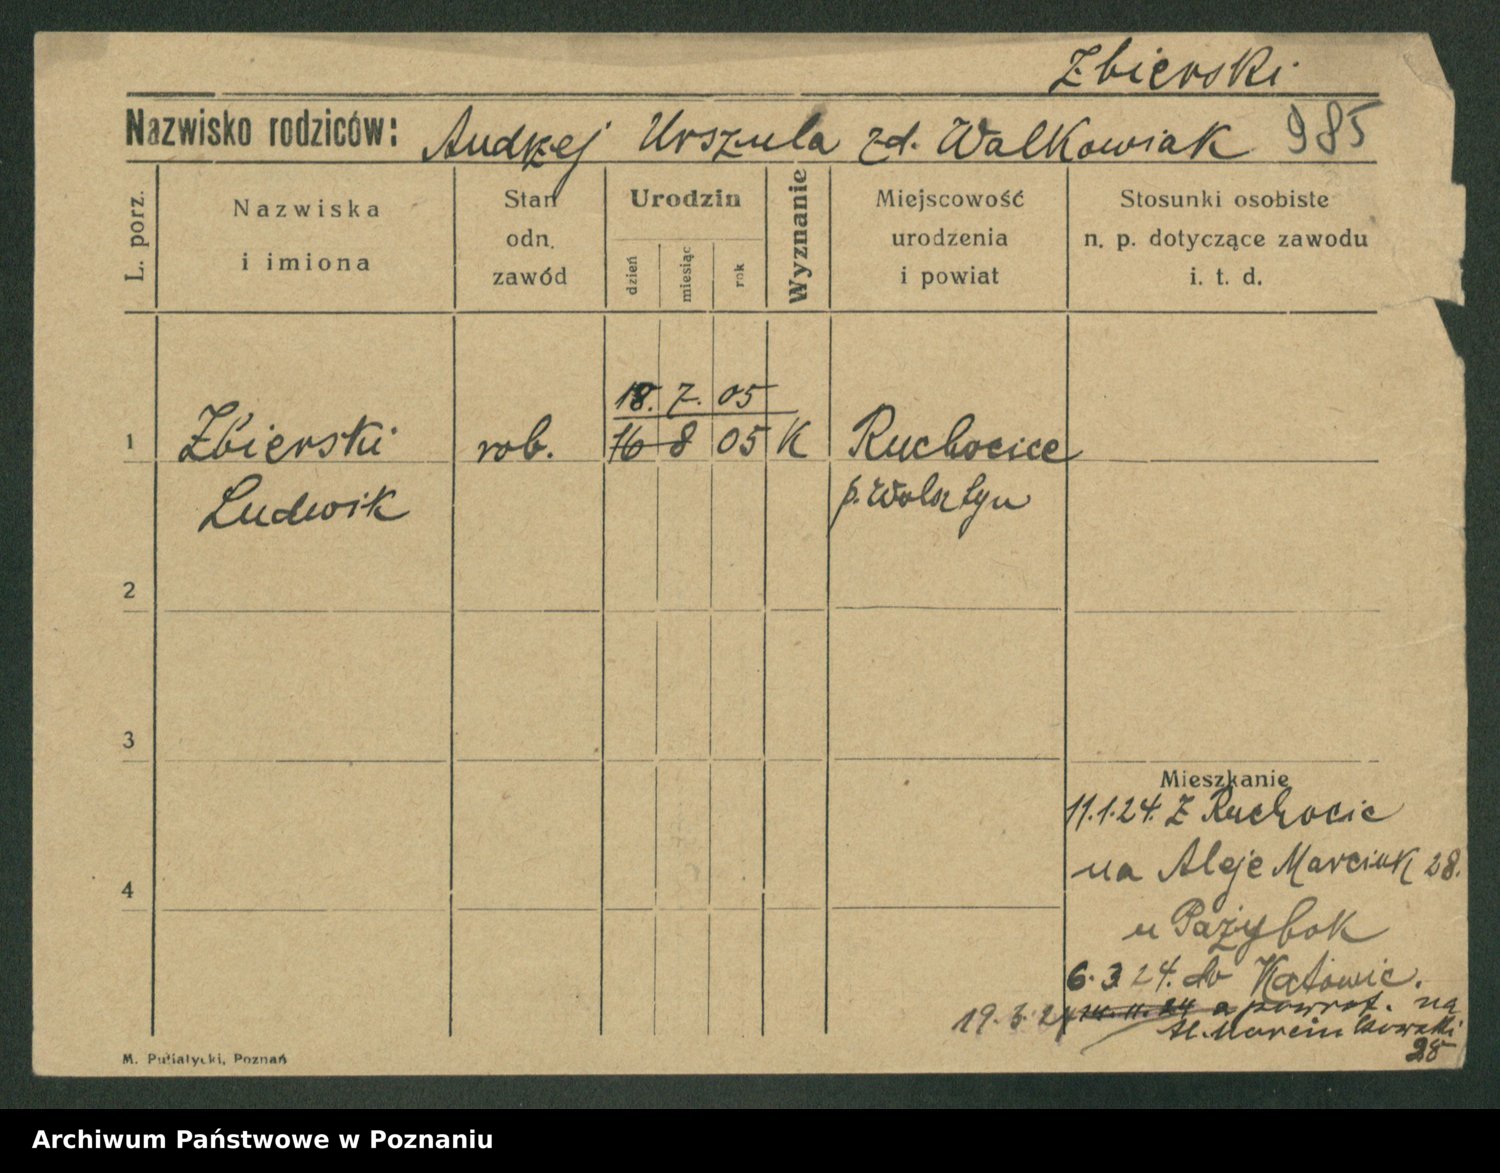 Zbierski
Nazwisko rodziców: Andrzej Urszula zd. Walkowiak 985
L. porz.
Nazwiska
i imiona
Stan
odn.
zawód
Urodzin
dzień
miesiąc
rok
Wyznanie
Miejscowość
urodzenia
i powiat
Stosunki osobiste
n. p. dotyczące zawodu
i. t. d.
18. 7. 05
1 Zbierski rob. 16 8 05 K Ruchocice
Ludwik p. Wolsztyn
2
3
Mieszkanie
11.1.24. z Ruchocic
na Aleje Marcink 28.
4
u Pażybok
6. 3 24. do Katowic.
19. 3. 24 14. 11. 24 a powrot. na
Al. Marcinkowski
28
M. Pusiatycki, Poznań
Archiwum Państwowe w Poznaniu